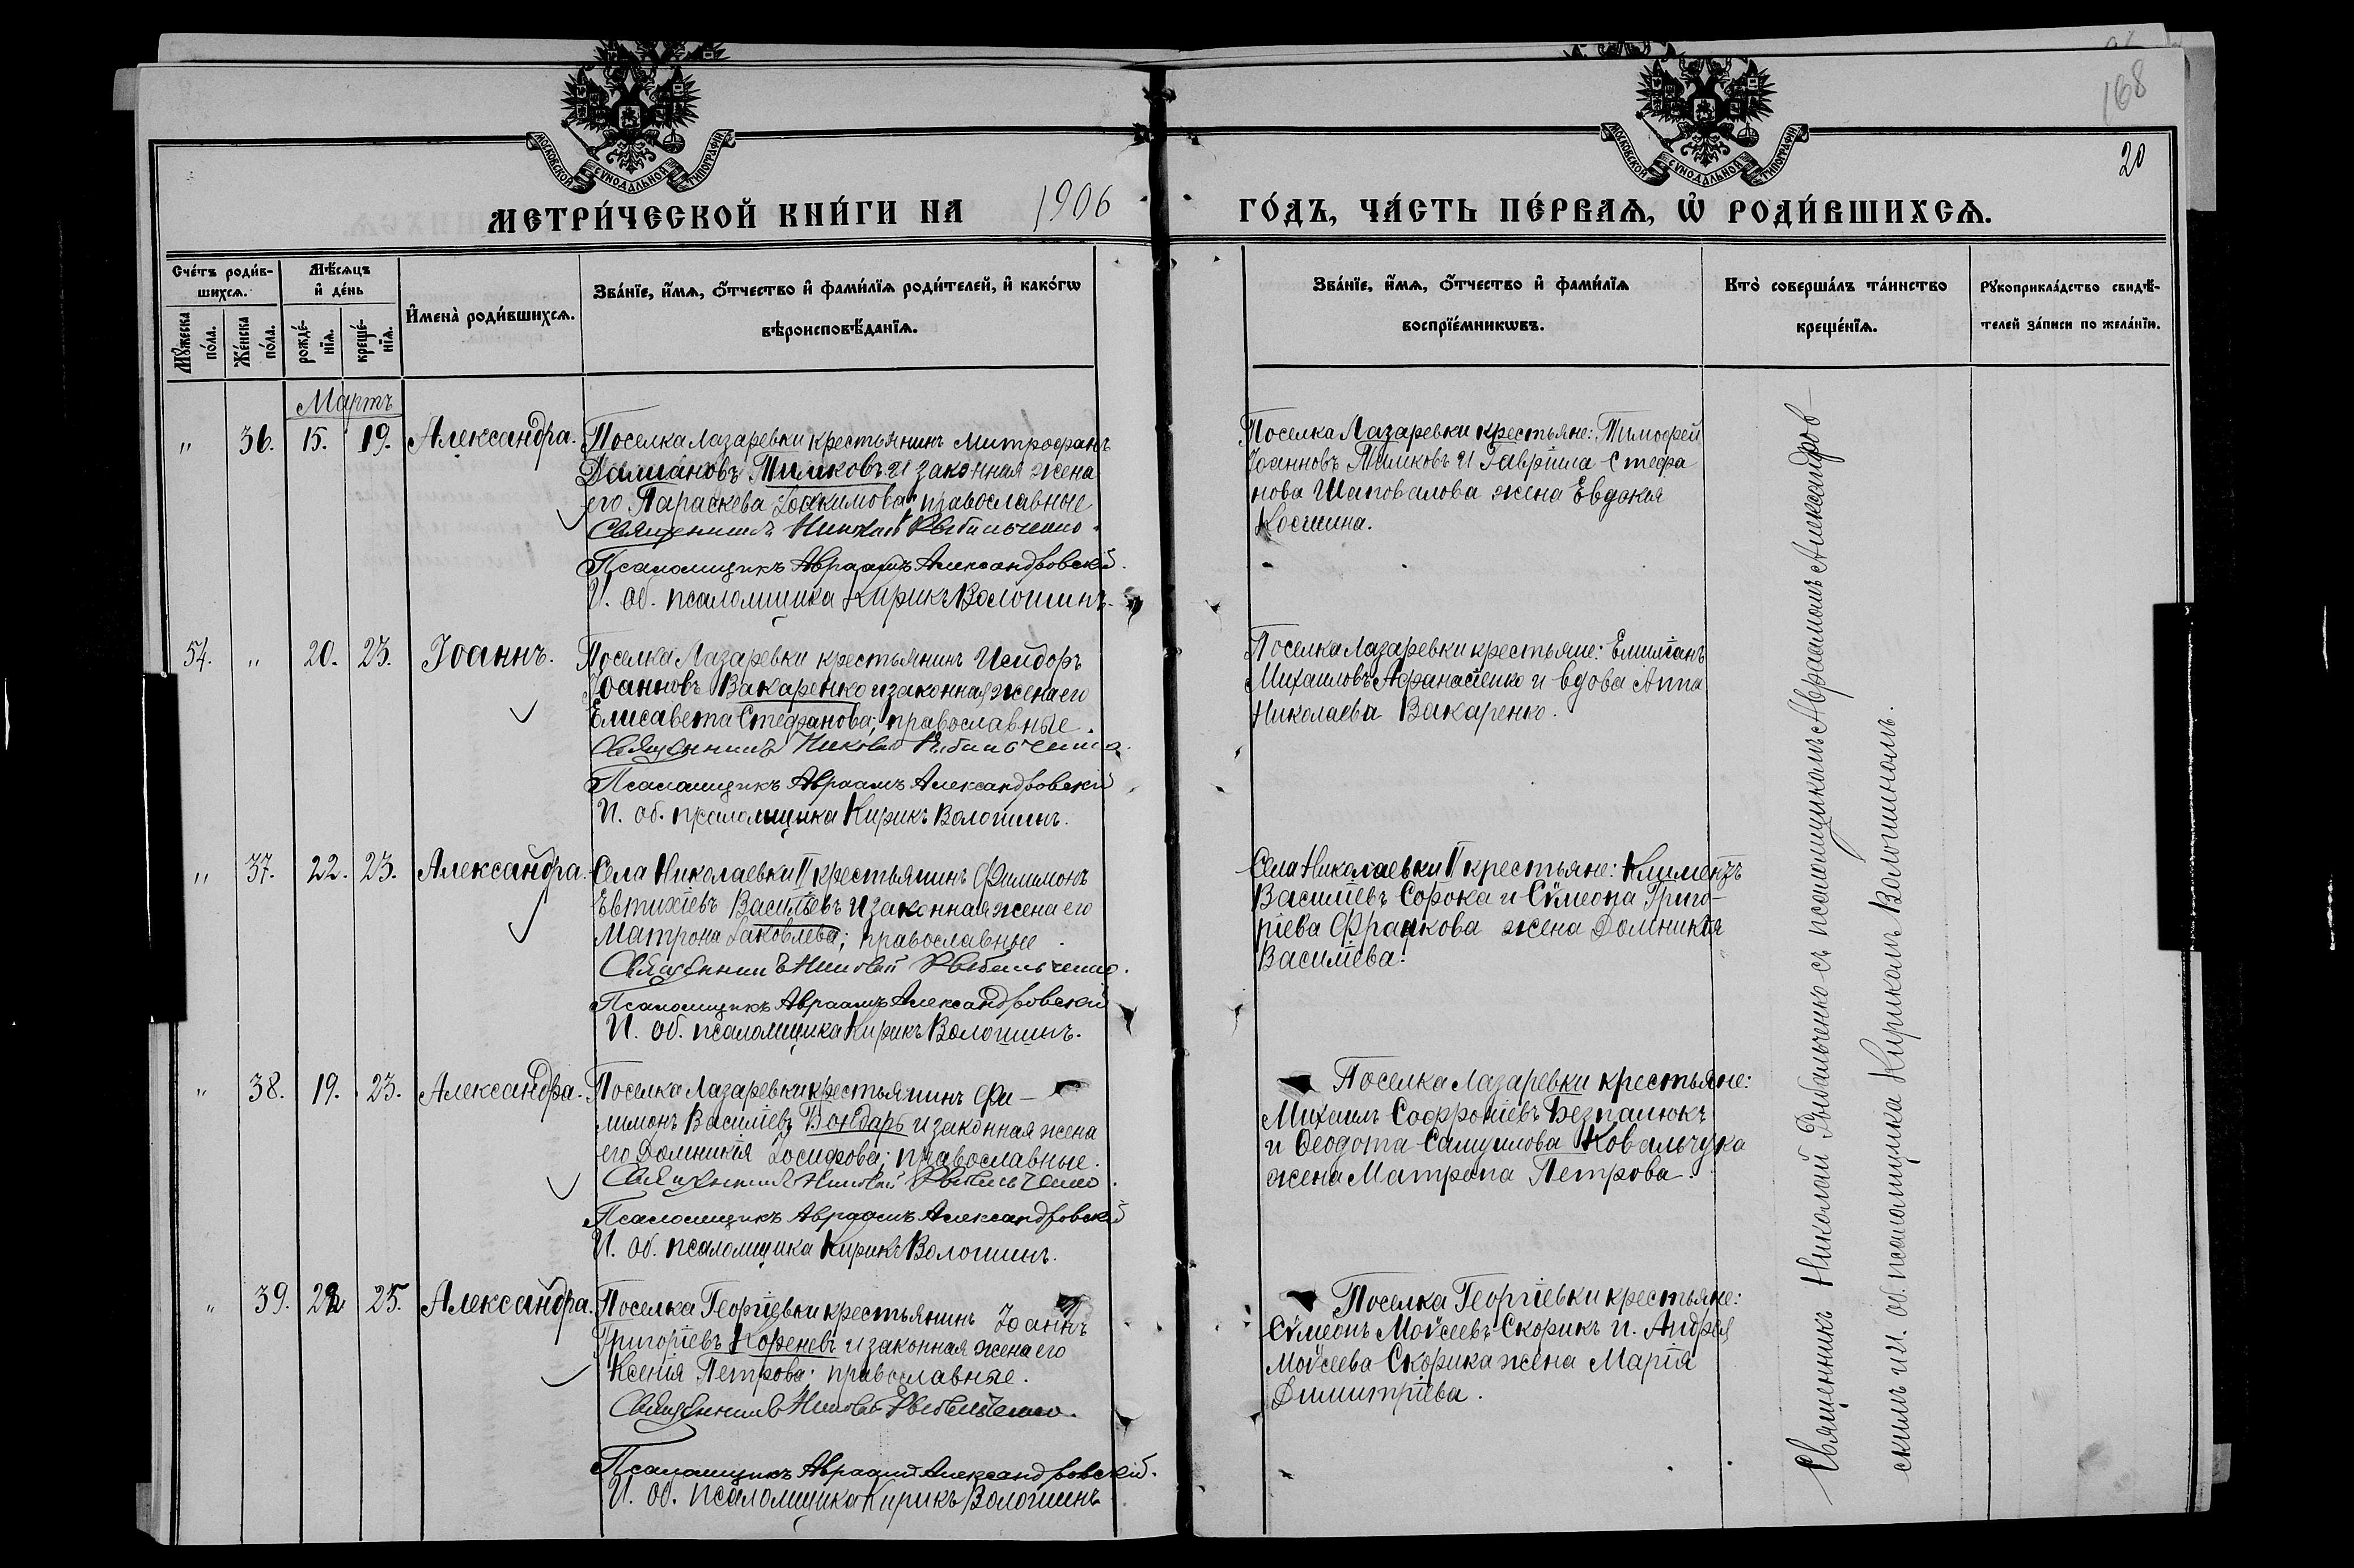 168
20
МОСКОВСКОЙ СѴНОДАЛЬНОЙ ТИПОГРАФІИ
МОСКОВСКОЙ СѴНОДАЛЬНОЙ ТИПОГРАФІИ
МЕТРИ́ЧЕСКОЙ КНИ́ГИ НА 1906 ГО́ДЪ, ЧА́СТЬ ПЕ́РВАѦ, Ѽ РОДИ́ВШИХСѦ.
Сче́тъ роди́в-
шихсѧ.
Мꙋ́жеска по́ла.
Же́нска по́ла.
Мѣ́сѧцъ
и҆ де́нь
рожде́-
нїѧ.
креще́-
нїѧ.
И҆мена̀ роди́вшихсѧ.
Зва́нїе, и҆́мѧ, ѻ҆́тчество и҆ фами́лїѧ роди́телей, и҆ како́гѡ
вѣроисповѣ́данїѧ.
Зва́нїе, и҆́мѧ, ѻ҆́тчество и҆ фами́лїѧ
воспрїе́мникѡвъ.
Кто̀ соверша́лъ та́инство
креще́нїѧ.
Рꙋкоприкла́дство свидѣ́-
телей за́писи по жела́нїю.
Мартъ
„ 36. 15. 19. Александра.
Поселка Лазаревки крестьянинъ Митрофанъ
Даміановъ Тимковъ и законная жена
его Параскева Іоакимова; православные
Священникъ Николай Рыбальченко.
Псаломщикъ Авраамъ Александровскій.
И. об. псаломщика Кирикъ Волошинъ.
Поселка Лазаревки крестьяне: Тимофей
Іоанновъ Тимковъ и Гавріила Стефа
нова Шаповалова жена Евдокія
Космина.
54. „ 20. 23. Іоаннъ.
Поселка Лазаревки крестьянинъ Исидоръ
Іоанновъ Вакаренко и законная жена его
Елисавета Стефанова; православные.
Священникъ Николай Рыбальченко.
Псаломщикъ Авраамъ Александровскій
И. об. псаломщика Кирикъ Волошинъ.
Поселка Лазаревки крестьяне: Емиліанъ
Михаиловъ Афанасіенко и вдова Анна
Николаева Вакаренко.
„ 37. 22. 23. Александра.
Села Николаевки II крестьянинъ Филимонъ
Евтихіевъ Василіевъ и законная жена его
Матрона Іаковлева; православные.
Священникъ Николай Рыбальченко.
Псаломщикъ Авраамъ Александровскій
И. об. псаломщика Кирикъ Волошинъ.
Села Николаевки II крестьяне: Климентъ
Василіевъ Сорока и Сѵмеона Григо-
ріева Франкова жена Домникія
Василіева.
„ 38. 19. 23. Александра.
Поселка Лазаревки крестьянинъ Фи-
лимонъ Василіевъ Бондарь и законная жена
его Домникія Іосифова; православные.
Священникъ Николай Рыбальченко.
Псаломщикъ Авраамъ Александровскій
И. об. псаломщика Кирикъ Волошинъ.
Поселка Лазаревки крестьяне:
Михаилъ Софроніевъ Безпалюкъ
и Ѳеодота Самуилова Ковальчука
жена Матрона Петрова.
„ 39. 22 25. Александра.
Поселка Георгіевки крестьянинъ Іоаннъ
Григоріевъ Кореневъ и законная жена его
Ксенія Петрова; православные.
Священникъ Николай Рыбальченко.
Псаломщикъ Авраамъ Александровскій.
И. об. псаломщика Кирикъ Волошинъ
Поселка Георгіевки крестьяне:
Сѵмеонъ Моѵсеевъ Скорикъ и Андрея
Моѵсеева Скорика жена Марія
Димитріева.
Священникъ Николай Рыбальченко съ псаломщикомъ Авраамомъ Александров-
скимъ и И. об. псаломщика Кирикомъ Волошиномъ.